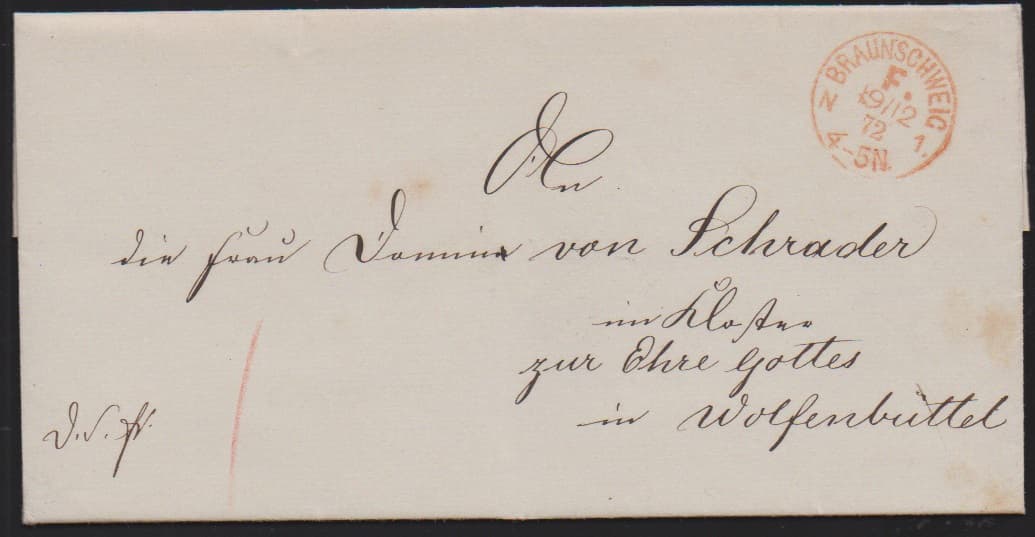 BRAUNSCHWEIG
F.
19/12
72
4-5N.
N 1.
An
die Frau Domina von Schrader
im Kloster
zur Ehre Gottes
in Wolfenbüttel